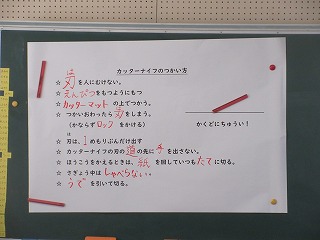 カッターナイフのつかい方
☆ 刃を人にむけない。
☆ えんぴつをもつようにもつ
☆ カッターマットの上でつかう。
☆ つかいおわったら刃をしまう。
（かならずロックをかける）
かくどにちゅうい！
☆ 刃は、1めもりぶんだけ出す
☆ カッターナイフの刃の道の先に手を出さない。
☆ ほうこうをかえるときは、紙を回していつもたてに切る。
☆ さぎょう中はしゃべらない。
☆ うでを引いて切る。